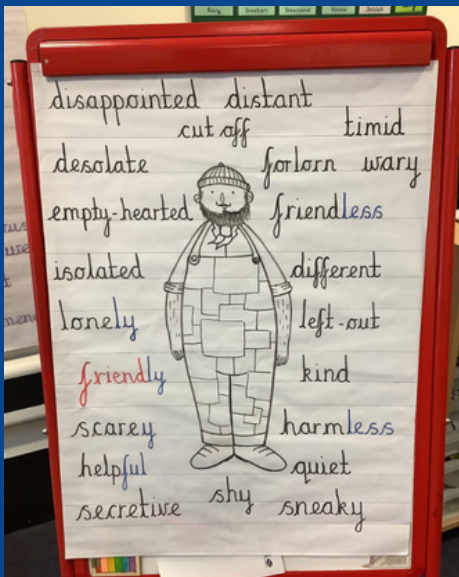 disappointed distant
cut off timid
desolate forlorn wary
empty-hearted friendless
isolated different
lonely left-out
friendly kind
scarey harmless
helpful quiet
secretive shy sneaky